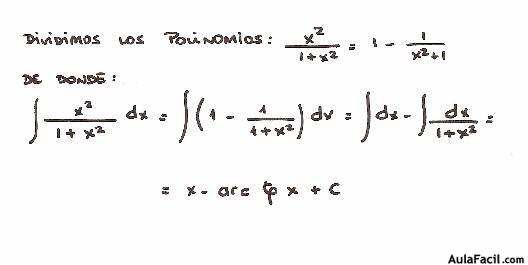 Dividimos los Polinomios: x²/(1+x²) = 1 - 1/(x²+1)
De donde:
∫ x²/(1+x²) dx = ∫(1 - 1/(1+x²)) dx = ∫dx - ∫ dx/(1+x²) =
= x - arc tg x + C
AulaFacil.com